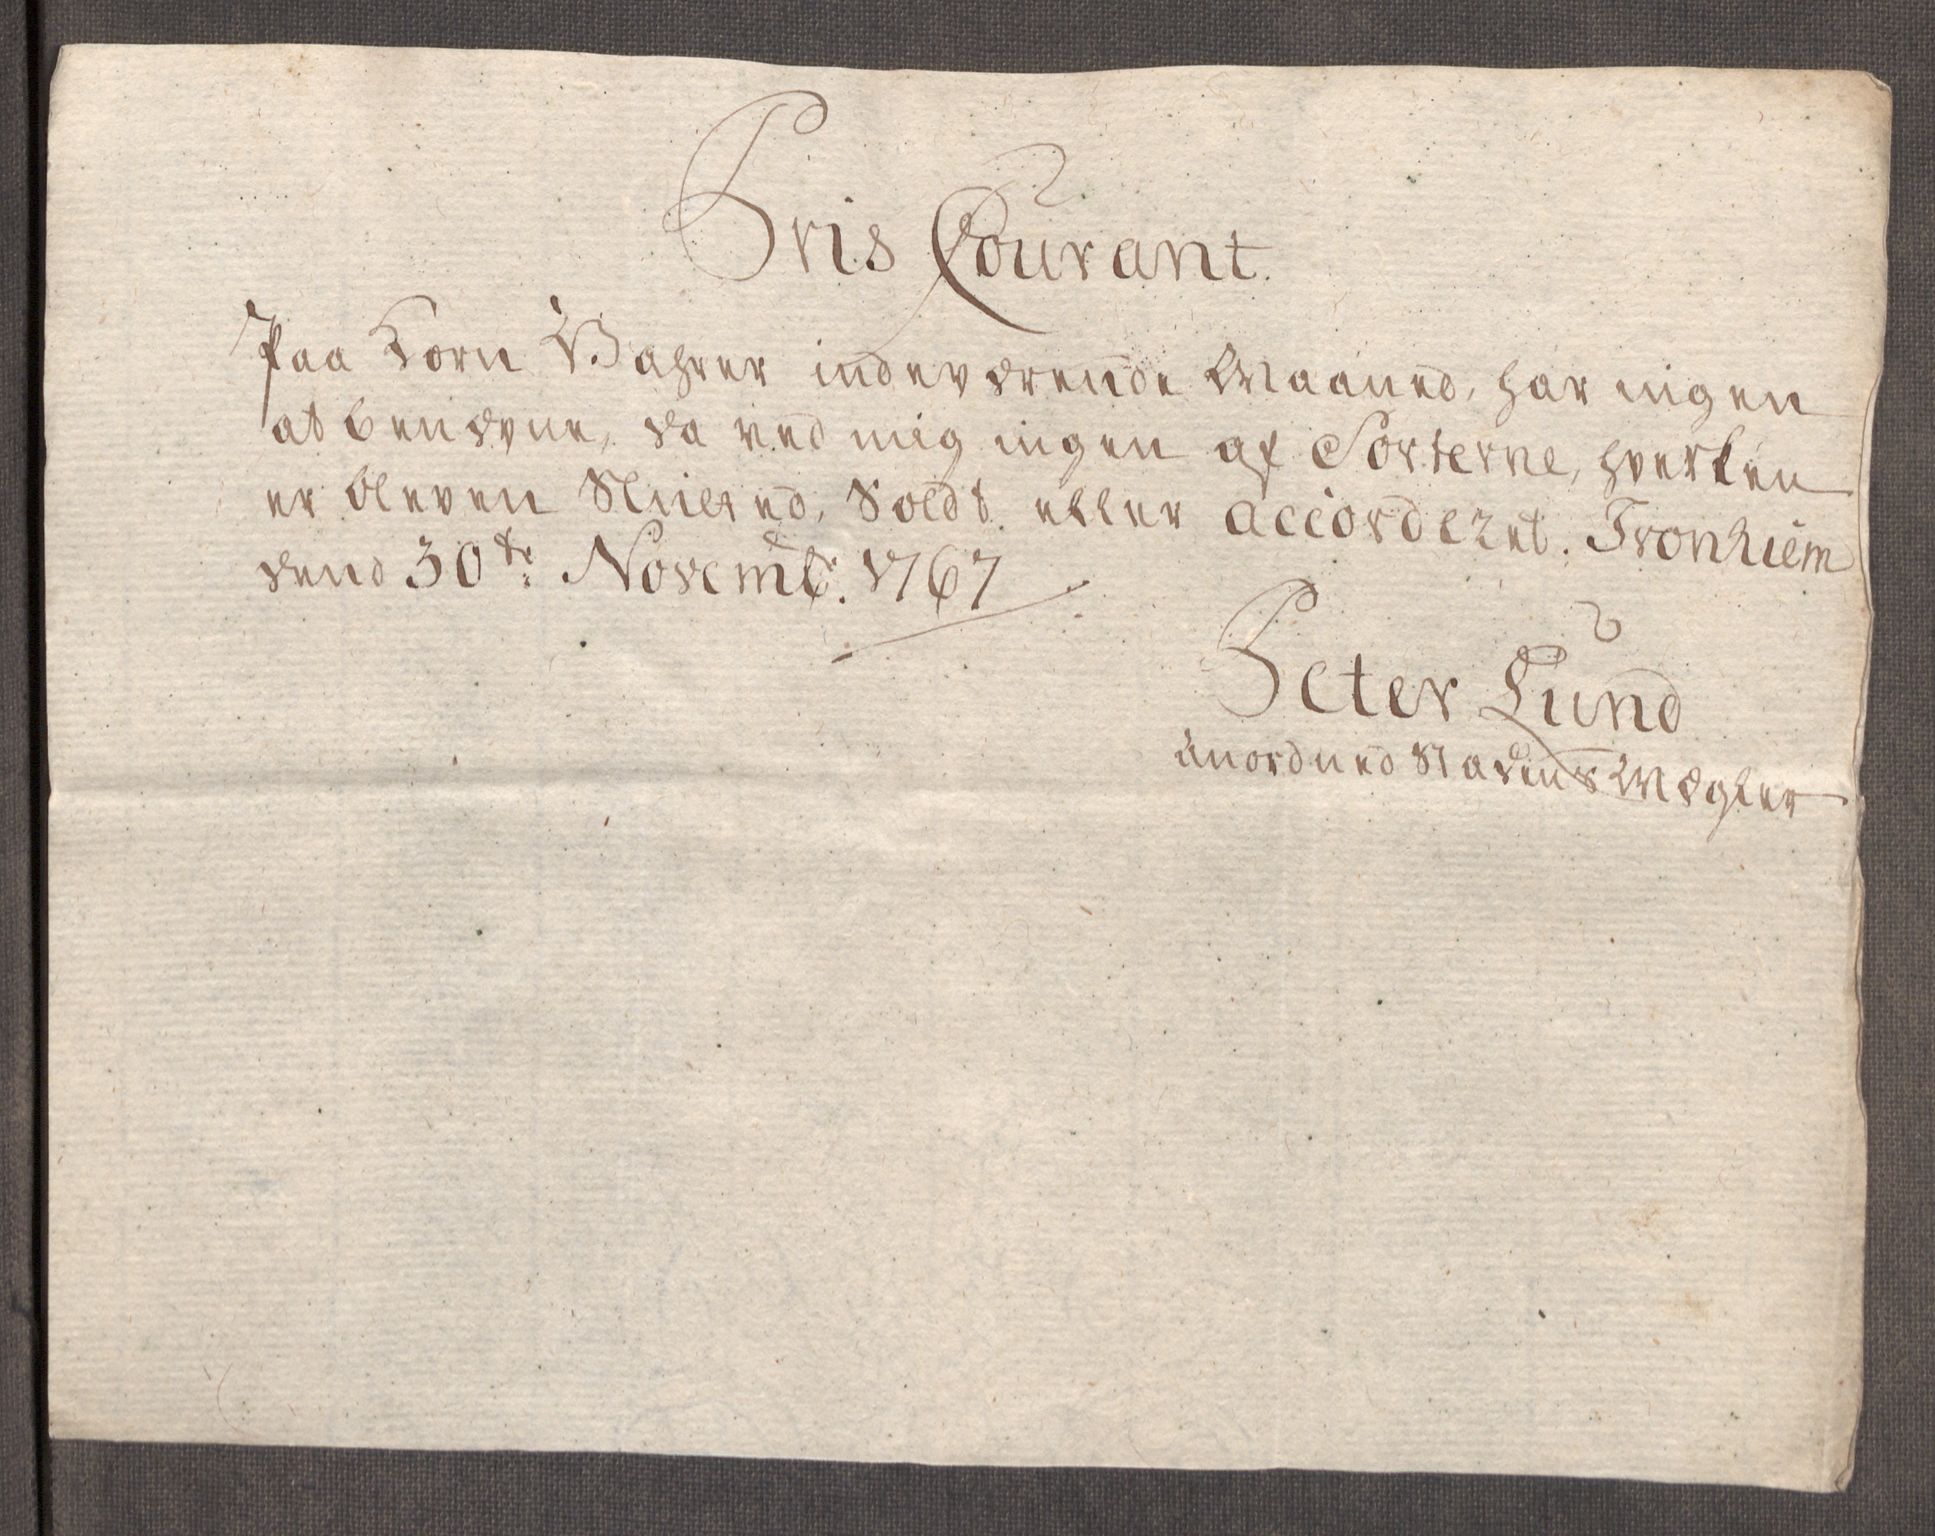 Pris Courant.
Paa Korn Wahrer indeværende Maaned, har ingen
at benævne, da ved mig ingen af Sorterne, hverken
er bleven Slutted, Soldt eller accorderet. Tronhiem
dend 30te Novembr. 1767
Peter Lund
anordned Stadens Mægler